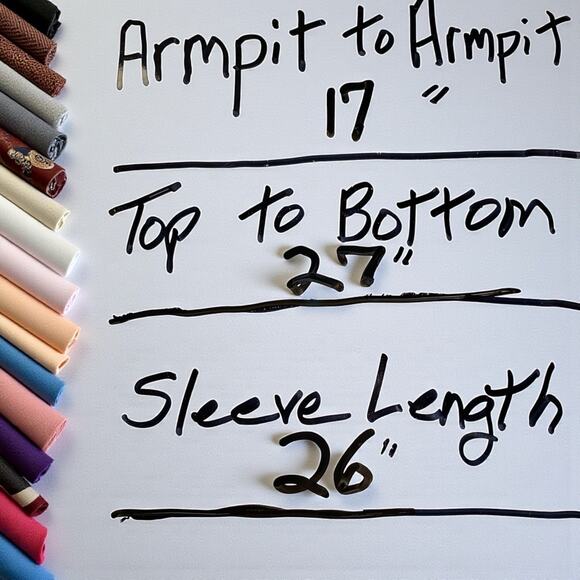 Armpit to Armpit
17 "
Top to Bottom
27"
Sleeve Length
26"